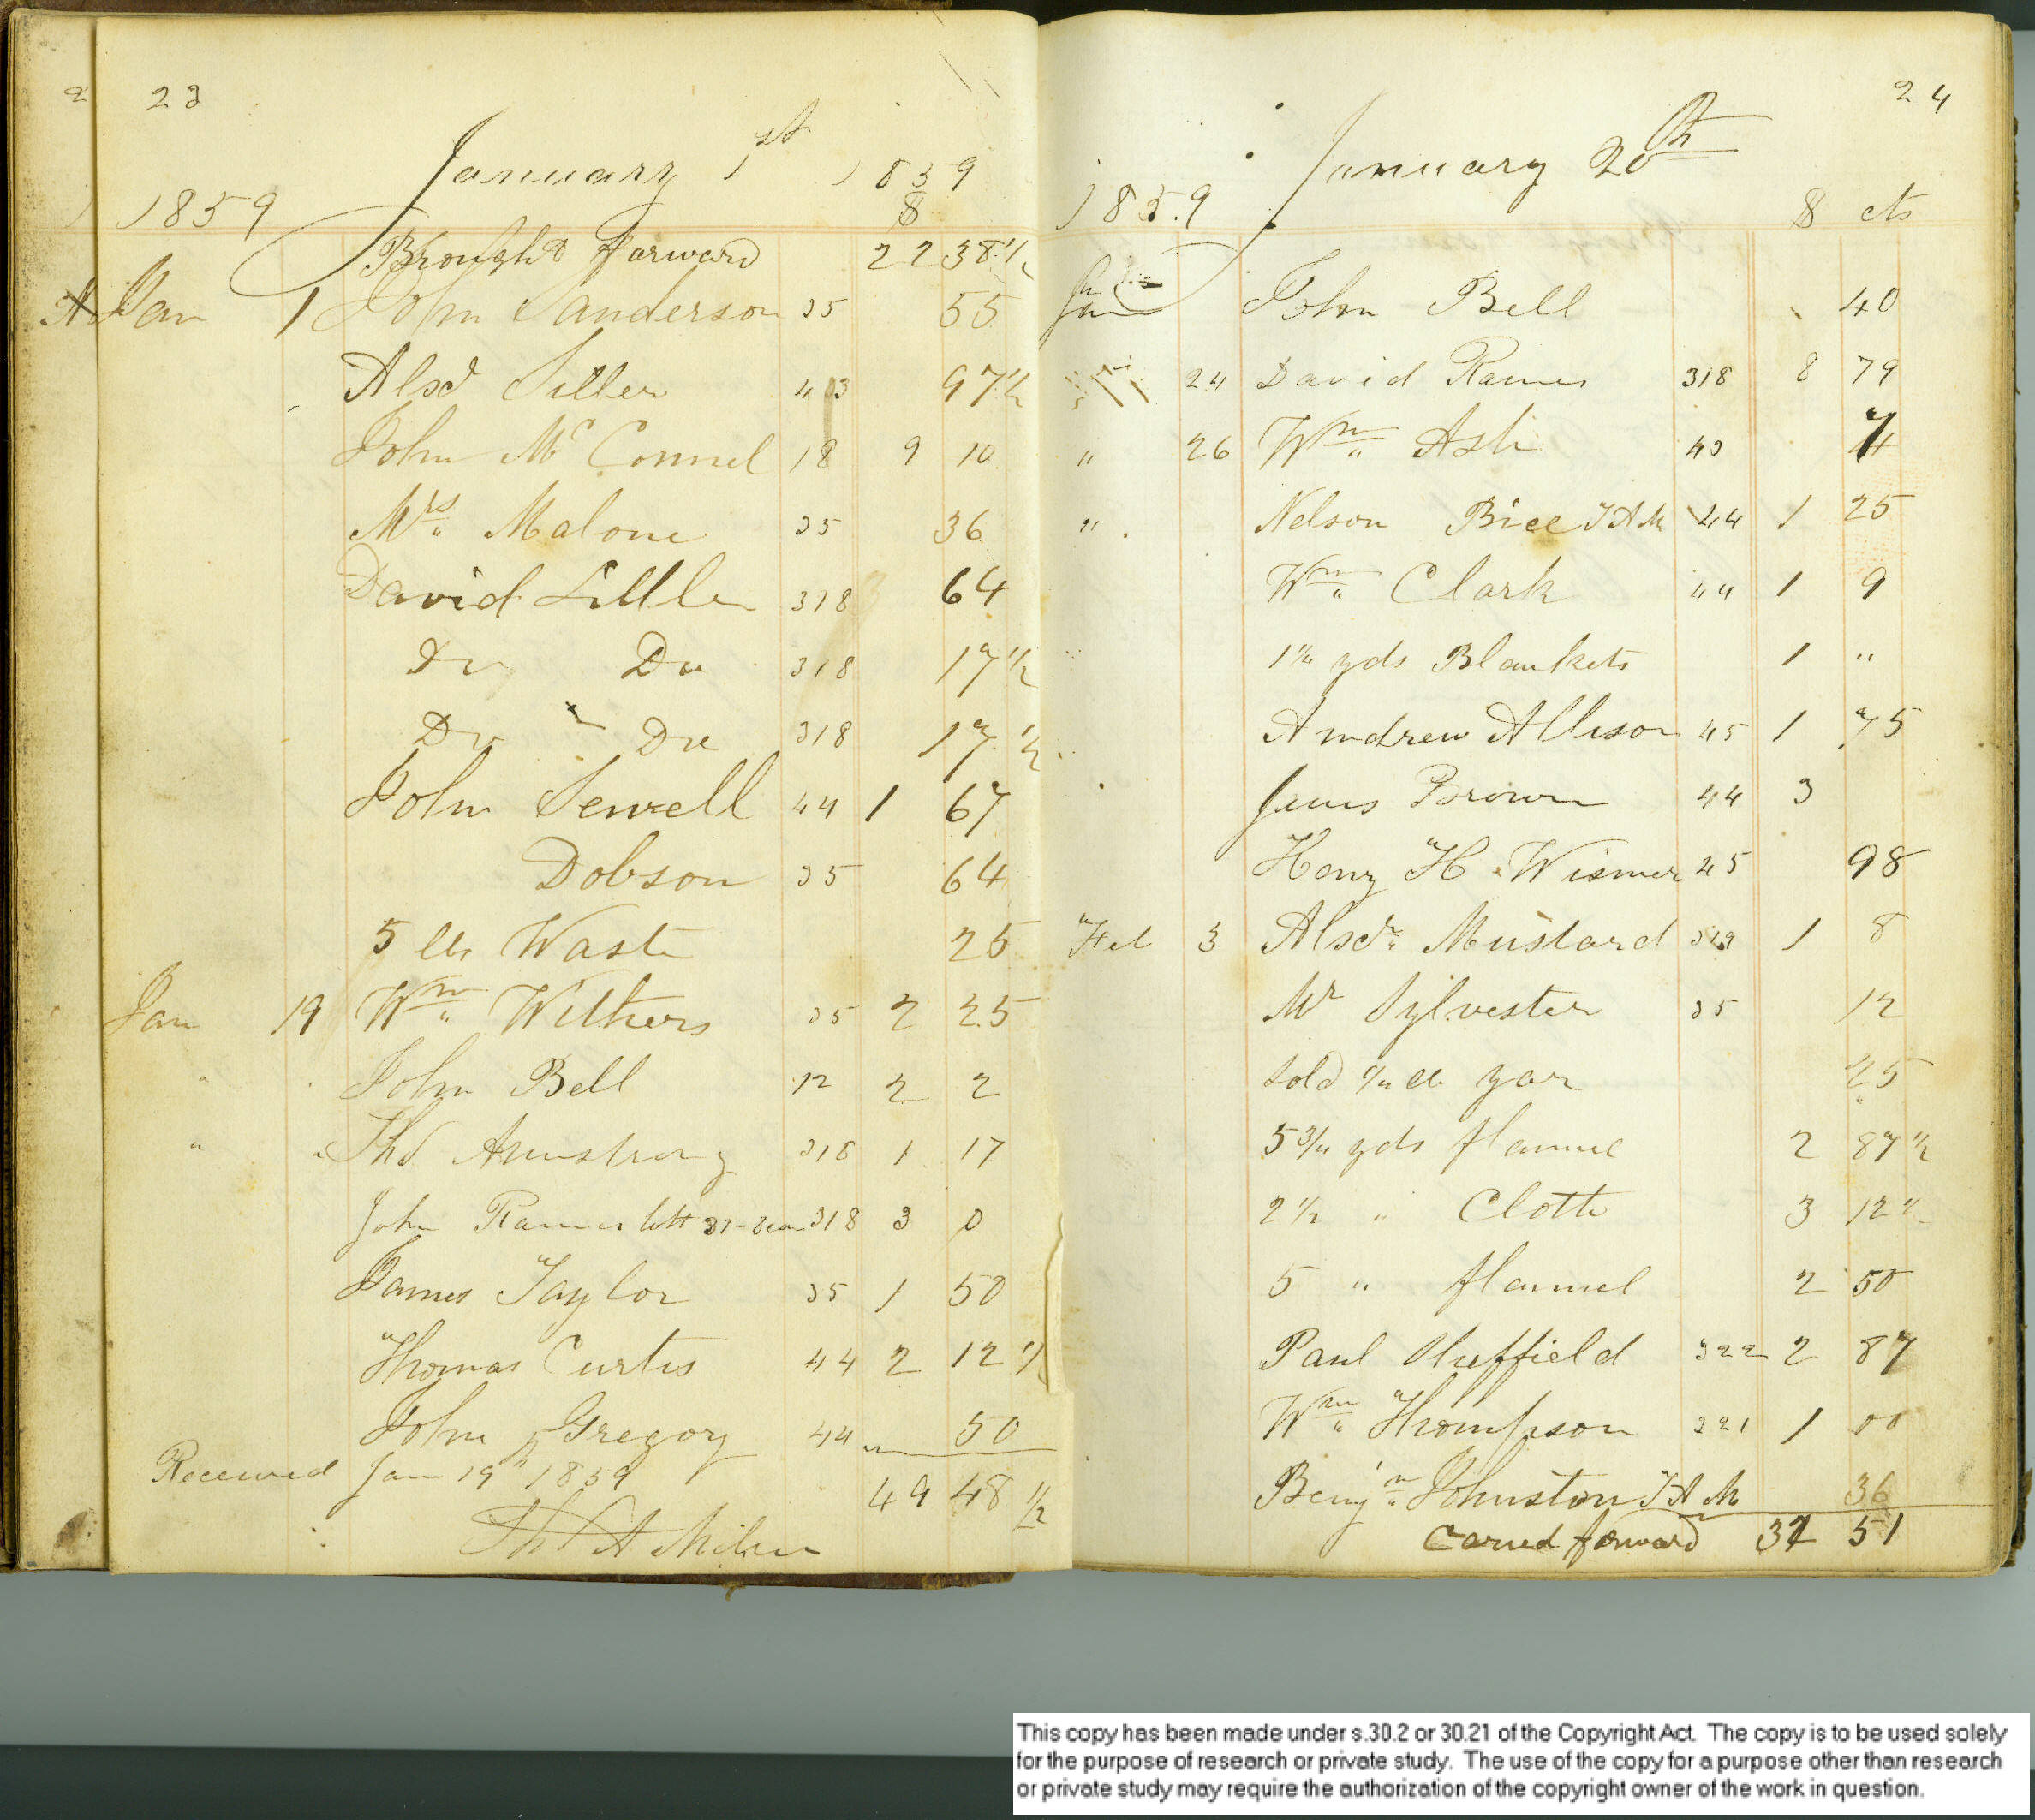 2 23
January 1st 1859
1859 $
Brought forward 22 38 1/2
Jan 1 John Sanderson 35 55
Alsd Siller 97 1/2
John Mc Connel 18 9 10
Mrs Malone 35 36
David Sillle 318 64
Do Do 318 17 1/2
Do Do 318 17 1/2
John Sewell 44 1 67
Dobson 35 64
5 lbs Waste 25
Jan 19 Wm Withers 35 2 25
John Bell 12 2 2
" Thd Armstrong 318 1 17
John Ramer 318 3 0
James Taylor 35 1 50
Thomas Curtis 44 2 12 1/2
John Gregory 44 50
Received Jan 19th 1859 49 48 1/2
Thd A Milne
24
January 20th
1859 $ cts
Jan John Bell 40
" 24 David Ramer 318 8 79
" 26 Wm Ash 43
" Nelson Bice T A M 44 1 25
Wm Clark 44 1 9
1 1/4 yds Blankets 1 "
Andrew Allison 45 1 75
James Brown 44 3
Henry H Wismer 45 98
Feb 3 Alsdr Mustard 319 1 8
Mr Sylvester 35 12
sold lb yar 25
5 3/4 yds flannel 2 87 1/2
2 1/2 " Cloth 3 12 1/2
5 " flannel 2 50
Paul Sheffield 322 2 87
Wm Thompson 321 1 00
Benjn Johnston T A M 36
Carried forward 51
This copy has been made under s.30.2 or 30.21 of the Copyright Act. The copy is to be used solely
for the purpose of research or private study. The use of the copy for a purpose other than research
or private study may require the authorization of the copyright owner of the work in question.